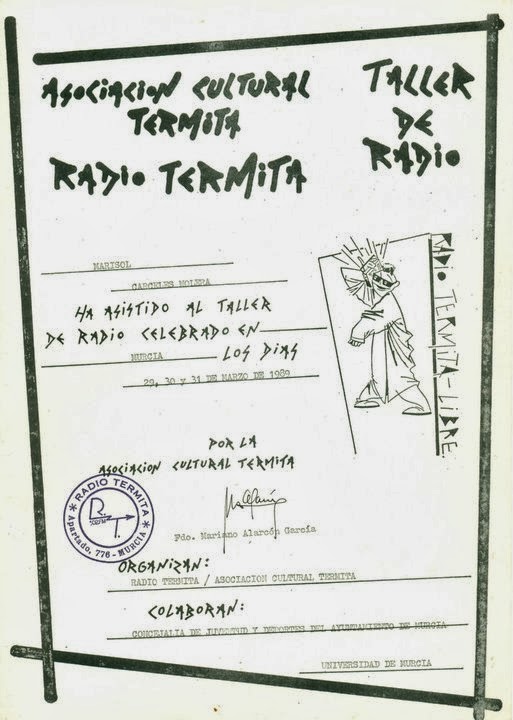 ASOCIACION CULTURAL
TERMITA
RADIO TERMITA
TALLER
DE
RADIO
MARISOL
CARCELES MOLERA
HA ASISTIDO AL TALLER
DE RADIO CELEBRADO EN
MURCIA LOS DIAS
29, 30 y 31 DE MARZO DE 1989
RADIO TERMITA-LIBRE
POR LA
ASOCIACION CULTURAL TERMITA
RADIO TERMITA
R.T.
Apartado, 776 - MURCIA
Fdo. Mariano Alarcón García
ORGANIZAN:
RADIO TERMITA / ASOCIACION CULTURAL TERMITA
COLABORAN:
CONCEJALIA DE JUVENTUD Y DEPORTES DEL AYUNTAMIENTO DE MURCIA
UNIVERSIDAD DE MURCIA